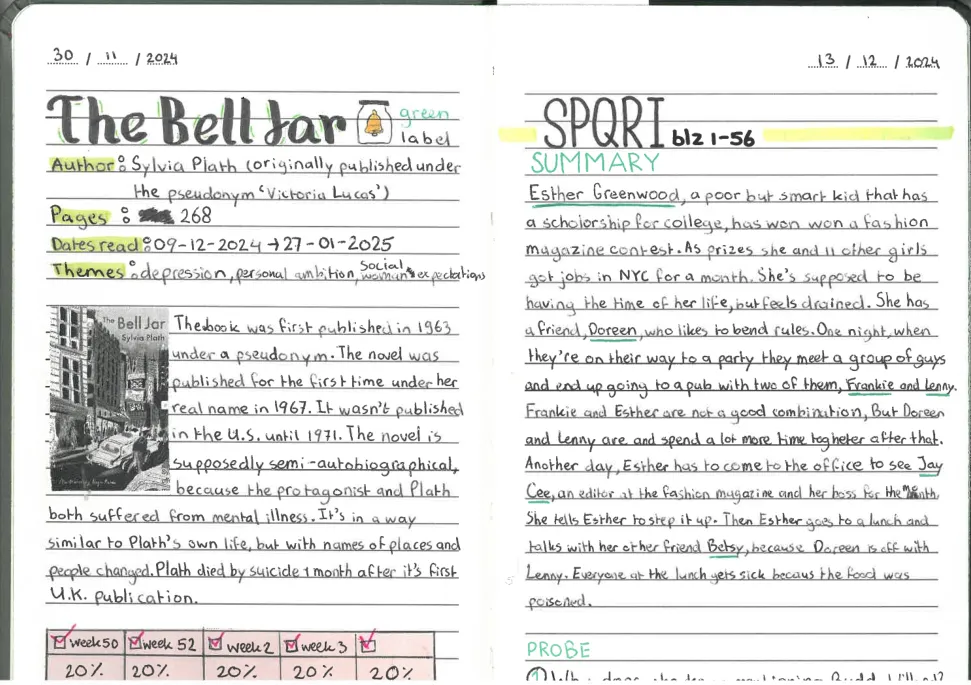 30 / 11 / 2024
The Bell Jar
green
label
Author: Sylvia Plath (originally published under
the pseudonym 'Victoria Lucas')
Pages: 268
Dates read: 09-12-2024 → 27-01-2025
Themes: depression, personal ambition, social woman's expectations
The Bell Jar
Sylvia Plath
The book was first published in 1963
under a pseudonym. The novel was
published for the first time under her
real name in 1967. It wasn't published
in the U.S. until 1971. The novel is
supposedly semi-autobiographical,
because the protagonist and Plath
both suffered from mental illness. It's in a way
similar to Plath's own life, but with names of places and
people changed. Plath died by suicide 1 month after it's first
U.K. publication.
week 50 week 52 week 2 week 3
20% 20% 20% 20% 20%
13 / 12 / 2024
SPQRI blz 1-56
SUMMARY
Esther Greenwood, a poor but smart kid that has
a scholorship for college, has won won a fashion
magazine contest. As prizes she and 11 other girls
got jobs in NYC for a month. She's supposed to be
having the time of her life, but feels drained. She has
a friend, Doreen, who likes to bend rules. One night, when
they're on their way to a party they meet a group of guys
and end up going to a pub with two of them, Frankie and Lenny.
Frankie and Esther are not a good combination, But Doreen
and Lenny are and spend a lot more time togheter after that.
Another day, Esther has to come to the office to see Jay
Cee, an editor at the fashion magazine and her boss for the month.
She tells Esther to step it up. Then Esther goes to a lunch and
talks with her other friend Betsy, because Doreen is off with
Lenny. Everyone at the lunch gets sick becaus the food was
poisoned.
PROBE